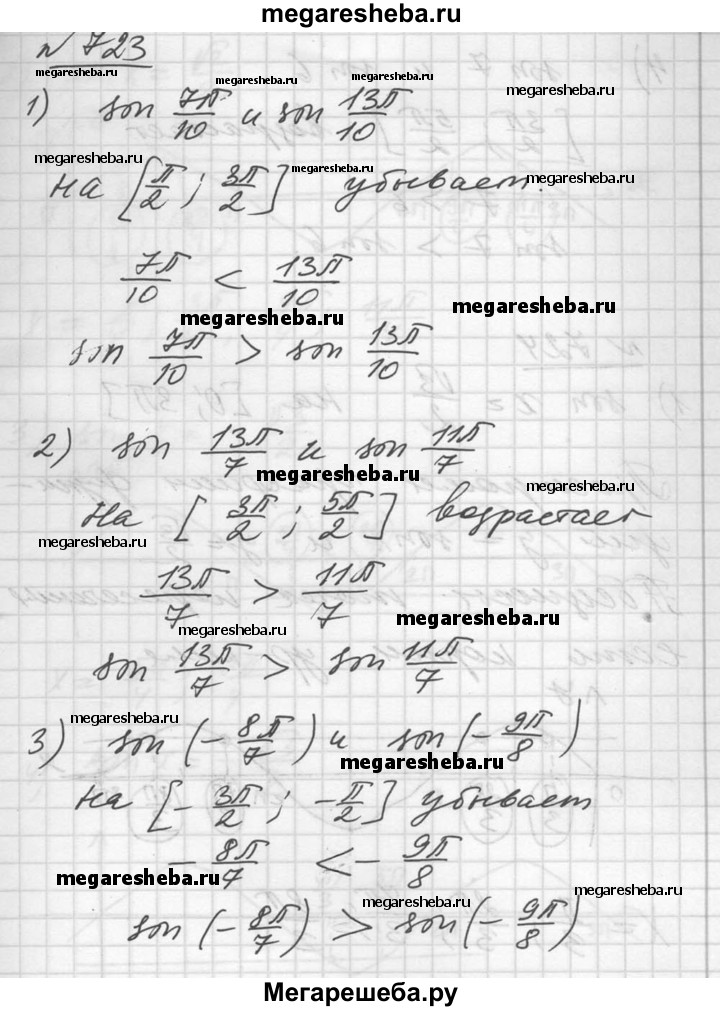 megaresheba.ru
№ 723
megaresheba.ru megaresheba.ru megaresheba.ru
1) sin 7π/10 и sin 13π/10
megaresheba.ru
megaresheba.ru megaresheba.ru
на [π/2 ; 3π/2] убывает.
megaresheba.ru
7π/10 < 13π/10
megaresheba.ru megaresheba.ru
sin 7π/10 > sin 13π/10
2) sin 13π/7 и sin 11π/7
megaresheba.ru megaresheba.ru
на [3π/2 ; 5π/2] возрастает
megaresheba.ru
13π/7 > 11π/7
megaresheba.ru megaresheba.ru
sin 13π/7 > sin 11π/7
megaresheba.ru
3) sin (-8π/7) и sin (-9π/8)
megaresheba.ru
на [-3π/2 ; -π/2] убывает
-8π/7 < -9π/8
megaresheba.ru megaresheba.ru megaresheba.ru
sin (-8π/7) > sin (-9π/8)
Мегарешеба.ру